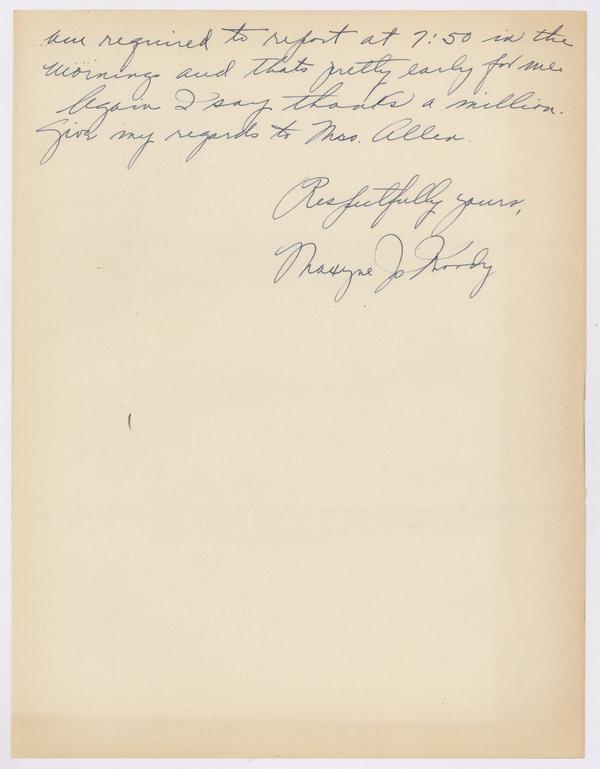 am required to report at 7:50 in the
mornings and thats pretty early for me.
Again I say thanks a million.
Give my regards to Mrs. Allen.
Respectfully yours,
Maxyne Jo